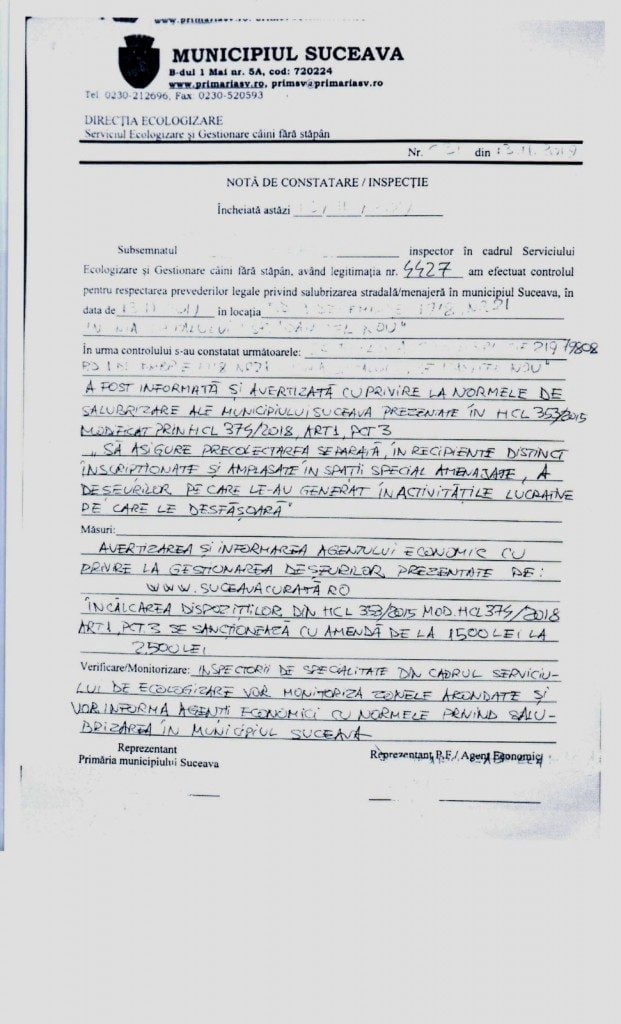 MUNICIPIUL SUCEAVA
B-dul 1 Mai nr. 5A, cod: 720224
www.primariasv.ro, primsv@primariasv.ro
Tel. 0230-212696, Fax: 0230-520593
DIRECȚIA ECOLOGIZARE
Serviciul Ecologizare și Gestionare câini fără stăpân
Nr. din 13.11.2019
NOTĂ DE CONSTATARE / INSPECȚIE
Încheiată astăzi
Subsemnatul inspector în cadrul Serviciului
Ecologizare și Gestionare câini fără stăpân, având legitimația nr. 4427 am efectuat controlul
pentru respectarea prevederilor legale privind salubrizarea stradală/menajeră în municipiul Suceava, în
data de în locația 1918, NR 21
NOU"
În urma controlului s-au constatat următoarele: 21979808
1918 NR21 NOU"
A FOST INFORMATĂ ȘI AVERTIZATĂ CU PRIVIRE LA NORMELE DE
SALUBRIZARE ALE MUNICIPIULUI SUCEAVA PREZENATE ÎN HCL 353/2015
MODECAT PRIN HCL 374/2018, ART1, PCT 3
„SĂ ASIGURE PRECOLECTAREA SEPARATĂ, ÎN RECIPIENTE DISTINCT
ÎNSCRIPȚIONATE ȘI AMPLASATE ÎN SPAȚII SPECIAL AMENAJATE, A
DEȘEURILOR PE CARE LE-AU GENERAT ÎN ACTIVITĂȚILE LUCRATIVE
PE CARE LE DESFĂȘOARĂ"
Măsuri:
AVERTIZAREA ȘI INFORMAREA AGENTULUI ECONOMIC CU
PRIVIRE LA GESTIONAREA DEȘEURILOR PREZENTATE DE:
WWW.SUCEAVACURATĂ.RO
ÎNCĂLCAREA DISPOZIȚIILOR DIN HCL 353/2015 MOD. HCL 374/2018
ART1, PCT.3 SE SANCȚIONEAZĂ CU AMENDĂ DE LA 1500 LEI LA
2500 LEI
Verificare/Monitorizare: INSPECTORII DE SPECIALITATE DIN CADRUL SERVICIU-
LUI DE ECOLOGIZARE VOR MONITORIZA ZONELE ARONDATE ȘI
VOR INFORMA AGENȚII ECONOMICI CU NORMELE PRIVIND SALU-
BRIZAREA ÎN MUNICIPIUL SUCEAVA
Reprezentant
Primăria municipiului Suceava
Reprezentant P.F./ Agent Economic